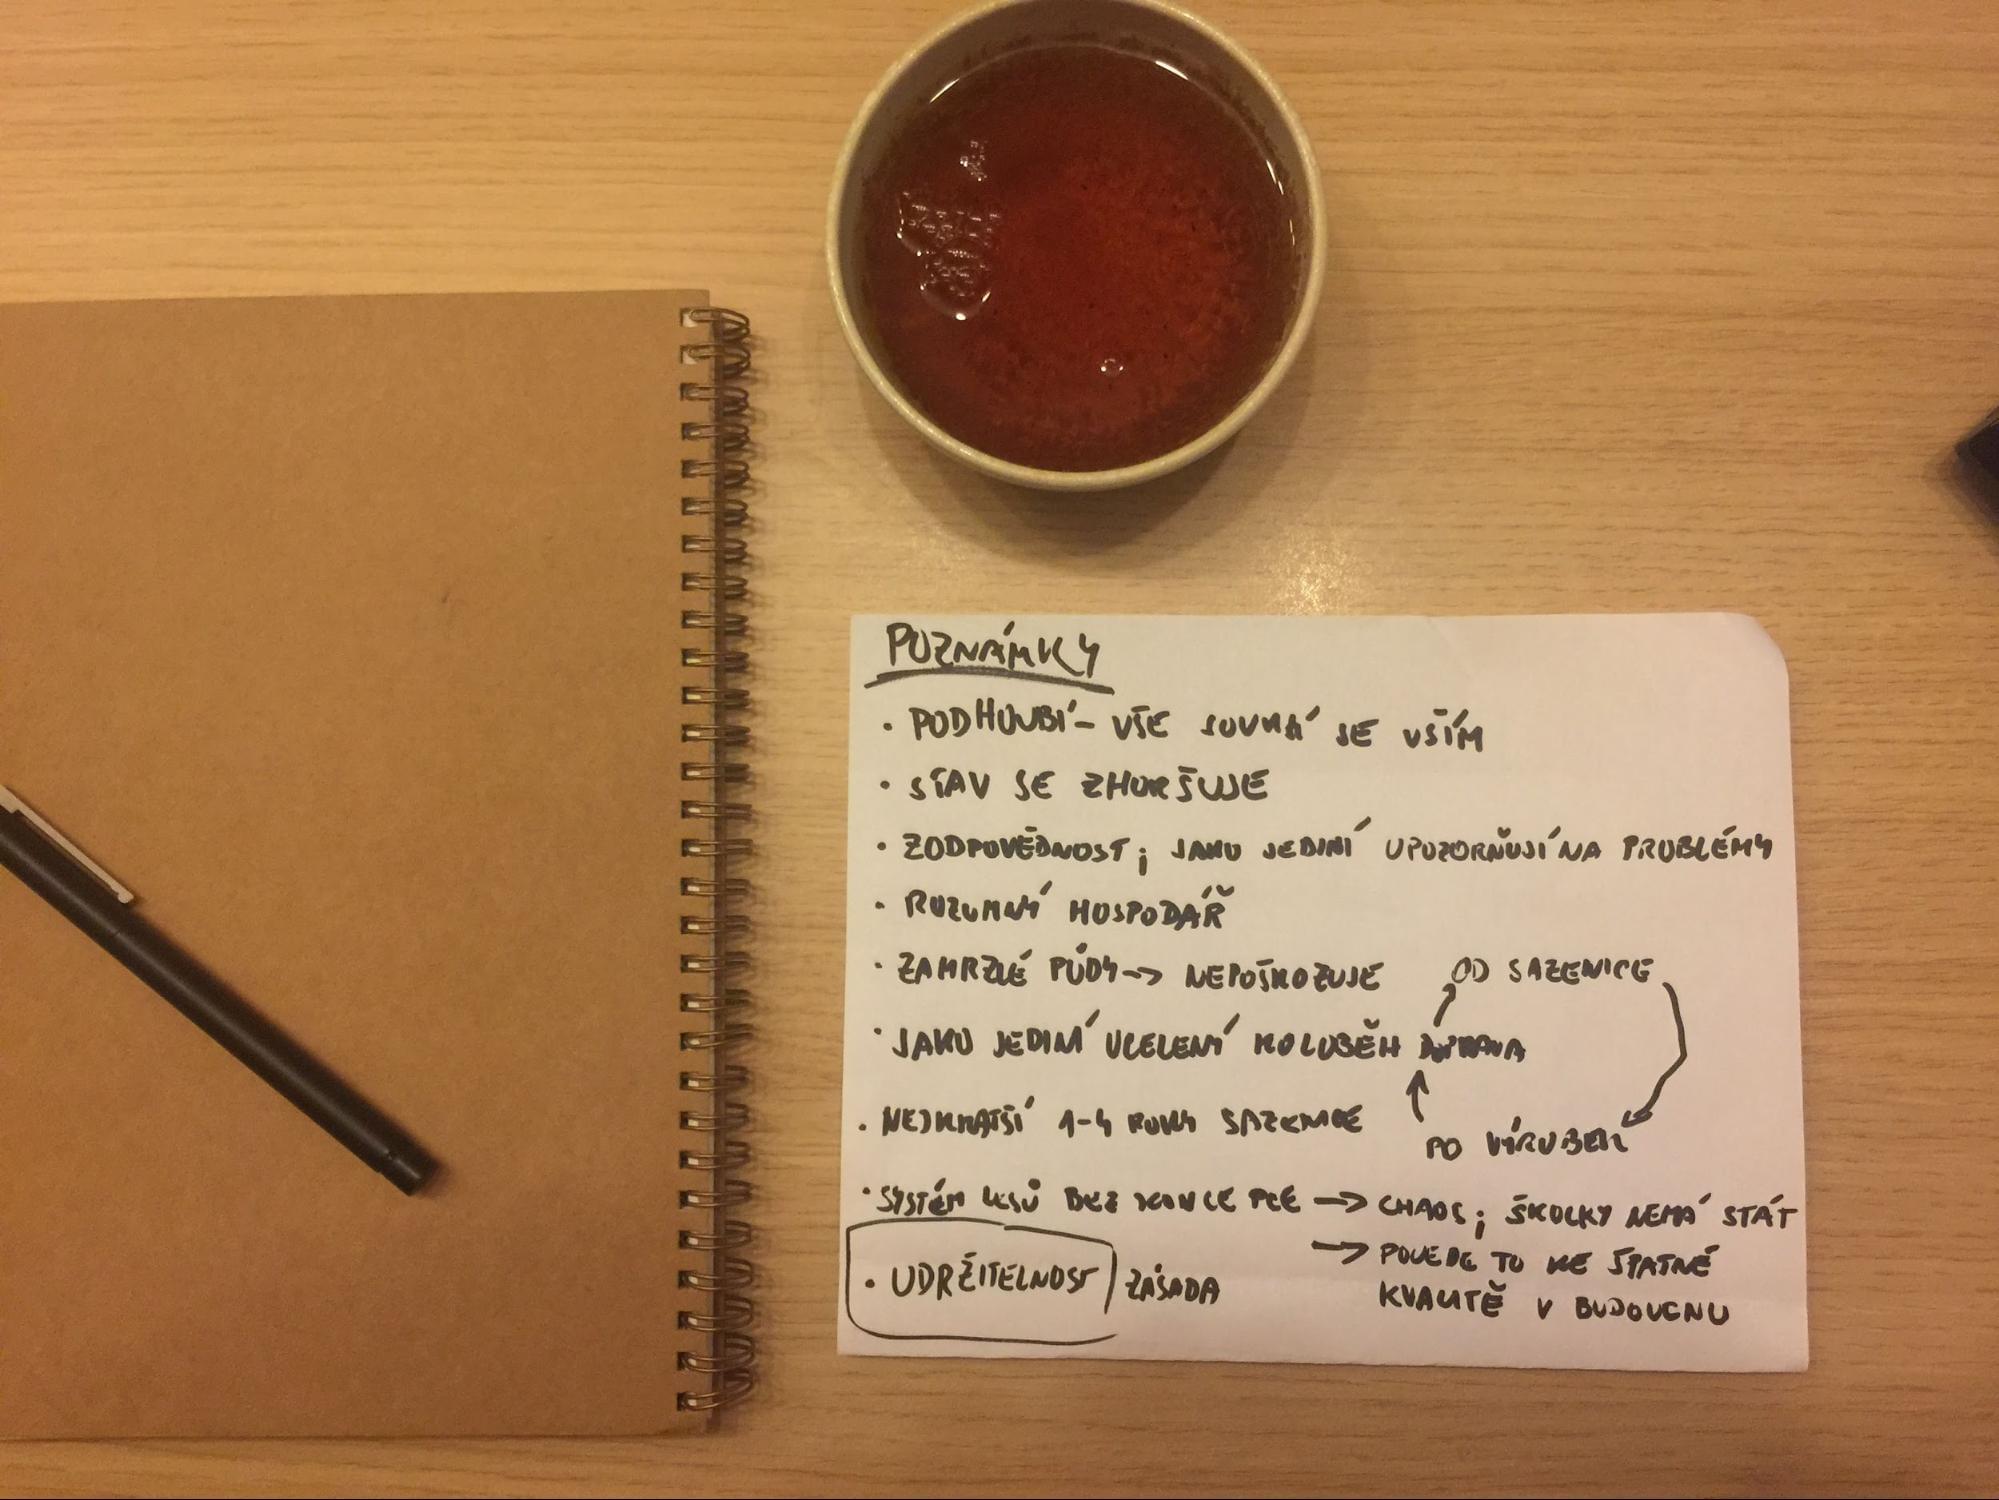 POZNÁMKY
• PODHOUBÍ – VŠE SOUVISÍ SE VŠÍM
• STAV SE ZHORŠUJE
• ZODPOVĚDNOST; JAKO JEDINÍ UPOZORŇUJÍ NA PROBLÉMY
• ROZUMNÝ HOSPODÁŘ
• ZAMRZLÉ PŮDY -> NEPOŠKOZUJE
OD SAZENICE
• JAKO JEDINÍ UCELENÝ KOLOBĚH
• NEJKRATŠÍ 1-4 ROKY SAZENICE
PO VÝRUBEK
• SYSTÉM LESŮ BEZ KONCEPCE -> CHAOS; ŠKOLKY NEMÁ STÁT
-> POVEDE TO KE ŠPATNÉ
KVALITĚ V BUDOUCNU
• UDRŽITELNOST ZÁSADA